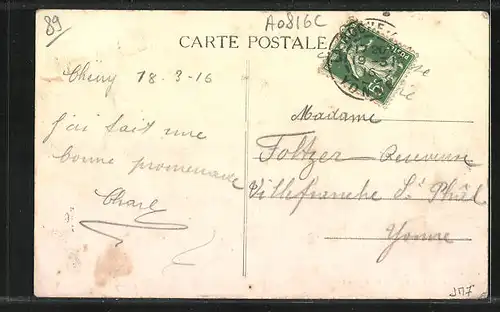 89
A0816C
CARTE POSTALE
Chény 18-3-16
j'ai fait une
bonne promenade
Charl
Madame
Foltzer
Villefranche St Phal
Yonne
JM7